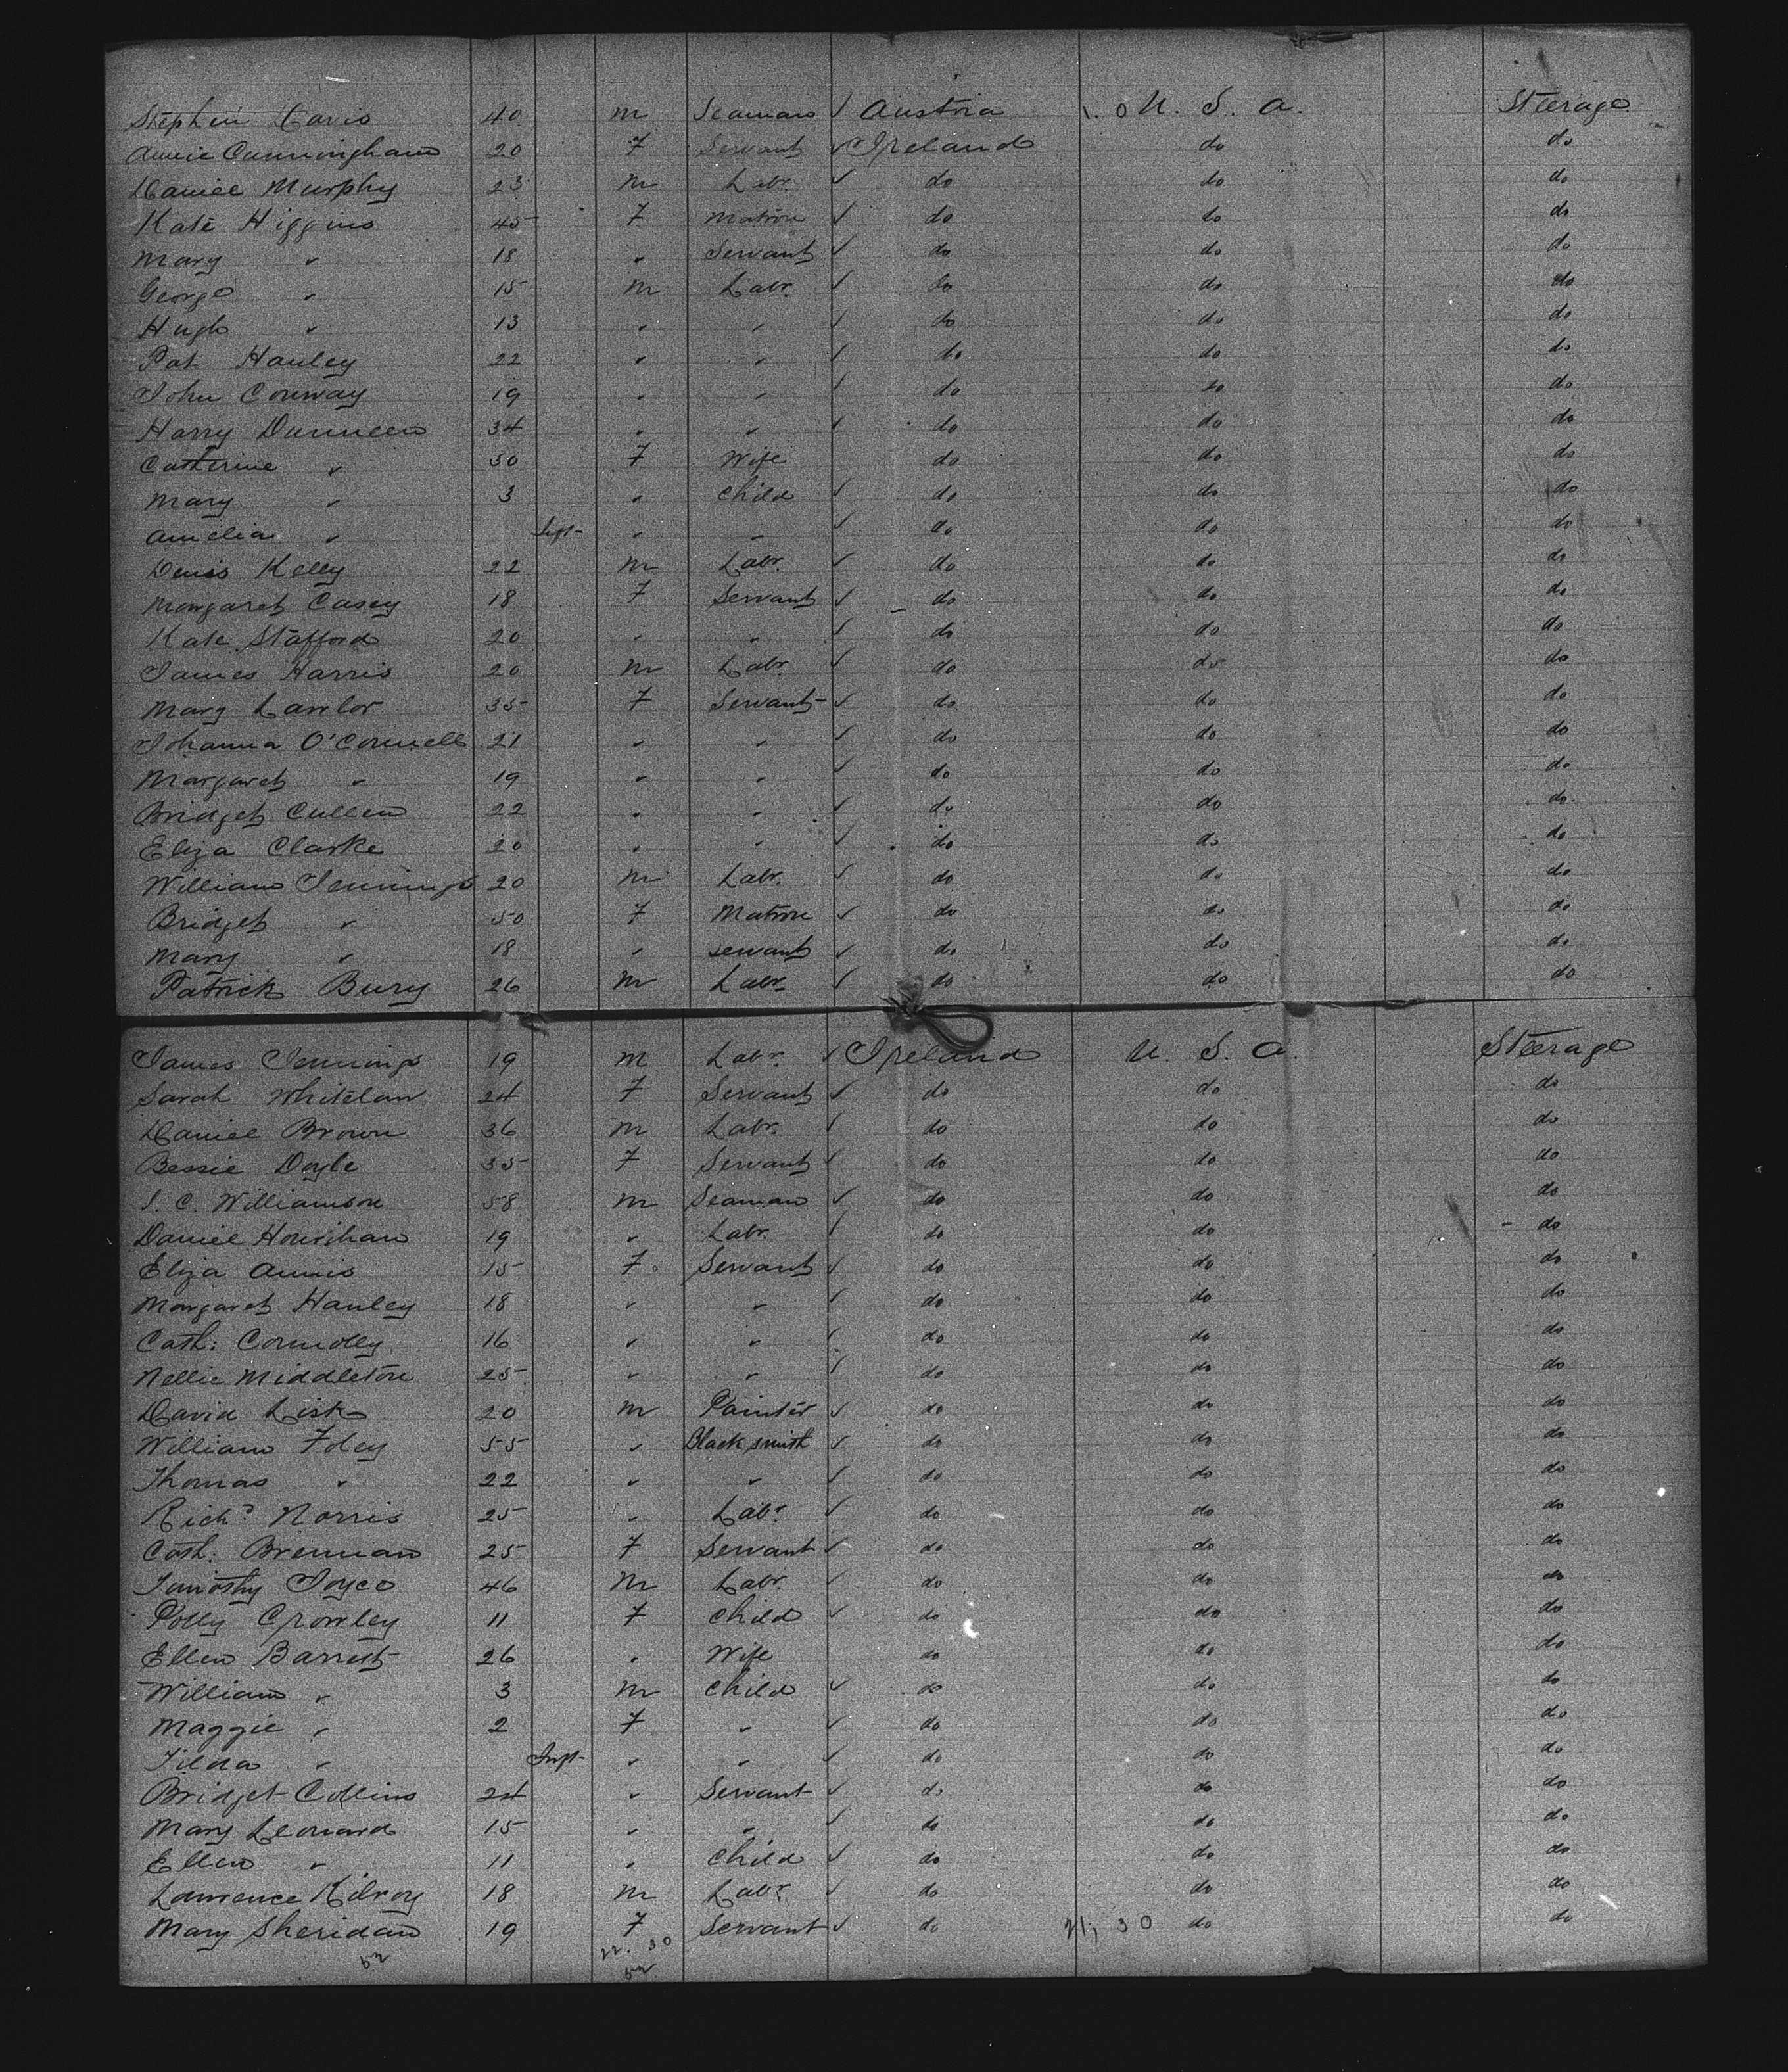 Stephen Davis 40 M Seaman ✓ Austria 1. 0 U. S. A. Steerage
Annie Cunningham 20 F Servant ✓ Ireland do do
Daniel Murphy 23 M Labr. ✓ do do do
Kate Higgins 45 F Matron ✓ do do do
Mary " 18 " Servant ✓ do do do
George " 15 M Labr. ✓ do do do
Hugh " 13 " " ✓ do do do
Pat Hanley 22 " " ✓ do do do
John Conway 19 " " ✓ do do do
Harry Dunneen 34 " " ✓ do do do
Catherine " 30 F Wife do do do
Mary " 3 " Child ✓ do do do
Amelia " Inft " " ✓ do do do
Denis Kelly 22 M Labr. ✓ do do do
Margaret Casey 18 F Servant ✓ do do do
Kate Stafford 20 " " ✓ do do do
James Harris 20 M Labr. ✓ do do do
Mary Lawlor 35 F Servant ✓ do do do
Johanna O'Connell 21 " " ✓ do do do
Margaret " 19 " " ✓ do do do
Bridget Cullen 22 " " ✓ do do do
Eliza Clarke 20 " " ✓ do do do
William Jennings 20 M Labr. ✓ do do do
Bridget " 50 F Matron ✓ do do do
Mary " 18 " Servant ✓ do do do
Patrick Bury 26 M Labr. ✓ do do do
James Jennings 19 M Labr. ✓ Ireland U. S. A. Steerage
Sarah Whitelaw 24 F Servant ✓ do do do
Daniel Brown 36 M Labr. ✓ do do do
Bessie Doyle 35 F Servant ✓ do do do
J. C. Williamson 58 M Seaman ✓ do do do
Daniel Hourihan 19 " Labr. ✓ do do do
Eliza Annis 15 F Servant ✓ do do do
Margaret Hanley 18 " " ✓ do do do
Cath: Connolly 16 " " ✓ do do do
Nellie Middleton 25 " " ✓ do do do
David Lisk 20 M Painter ✓ do do do
William Foley 55 " Blacksmith ✓ do do do
Thomas " 22 " " ✓ do do do
Richd Norris 25 " Labr. ✓ do do do
Cath: Brennan 25 F Servant ✓ do do do
Timothy Joyce 46 M Labr. ✓ do do do
Polly Crowley 11 F Child ✓ do do do
Ellen Barrett 26 " Wife do do do
William " 3 M Child ✓ do do do
Maggie " 2 F " ✓ do do do
Tilda " Inft " " ✓ do do do
Bridget Collins 24 " Servant ✓ do do do
Mary Leonard 15 " " ✓ do do do
Ellen " 11 " Child ✓ do do do
Lawrence Kilroy 18 M Labr. ✓ do do do
Mary Sheridan 19 F Servant ✓ do 21, 30 do do
52 22. 30
52